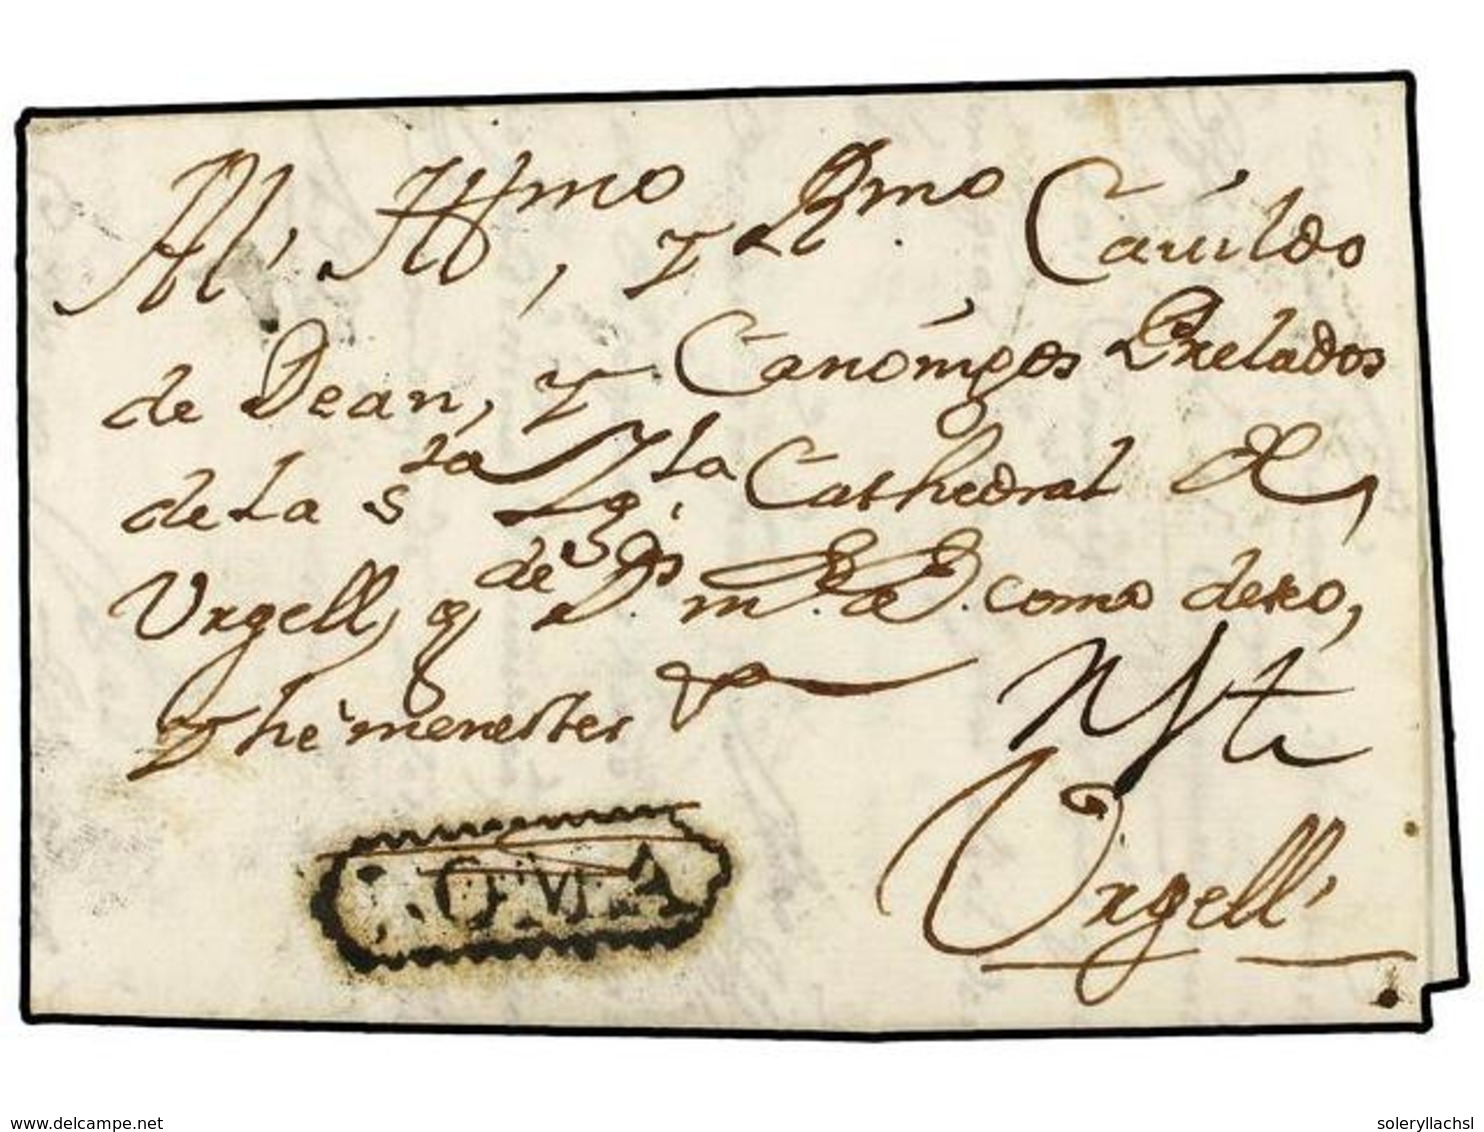 Al Yllmo, y Rmo Cavildo
de Dean, y Canónigos Prelados
de la Sta Ygla Cathedral de,
Urgell, q de Ds ms as como deseo,
y he menester
Urgell
ROMA
delcampe.net
soleryllachsl